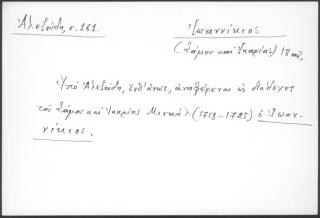 Ἀλεξούδη, σ. 161.
Ἰωαννίκιος
(Σάμου καὶ Ἰκαρίας) 18 αἰ.
Ὑπὸ Ἀλεξούδη, ἔνθ' ἀνωτ., ἀναφέρεται ὡς διάδοχος
τοῦ Σάμου καὶ Ἰκαρίας Μισαὴλ (1718-1725) ὁ Ἰωαν-
νίκιος.